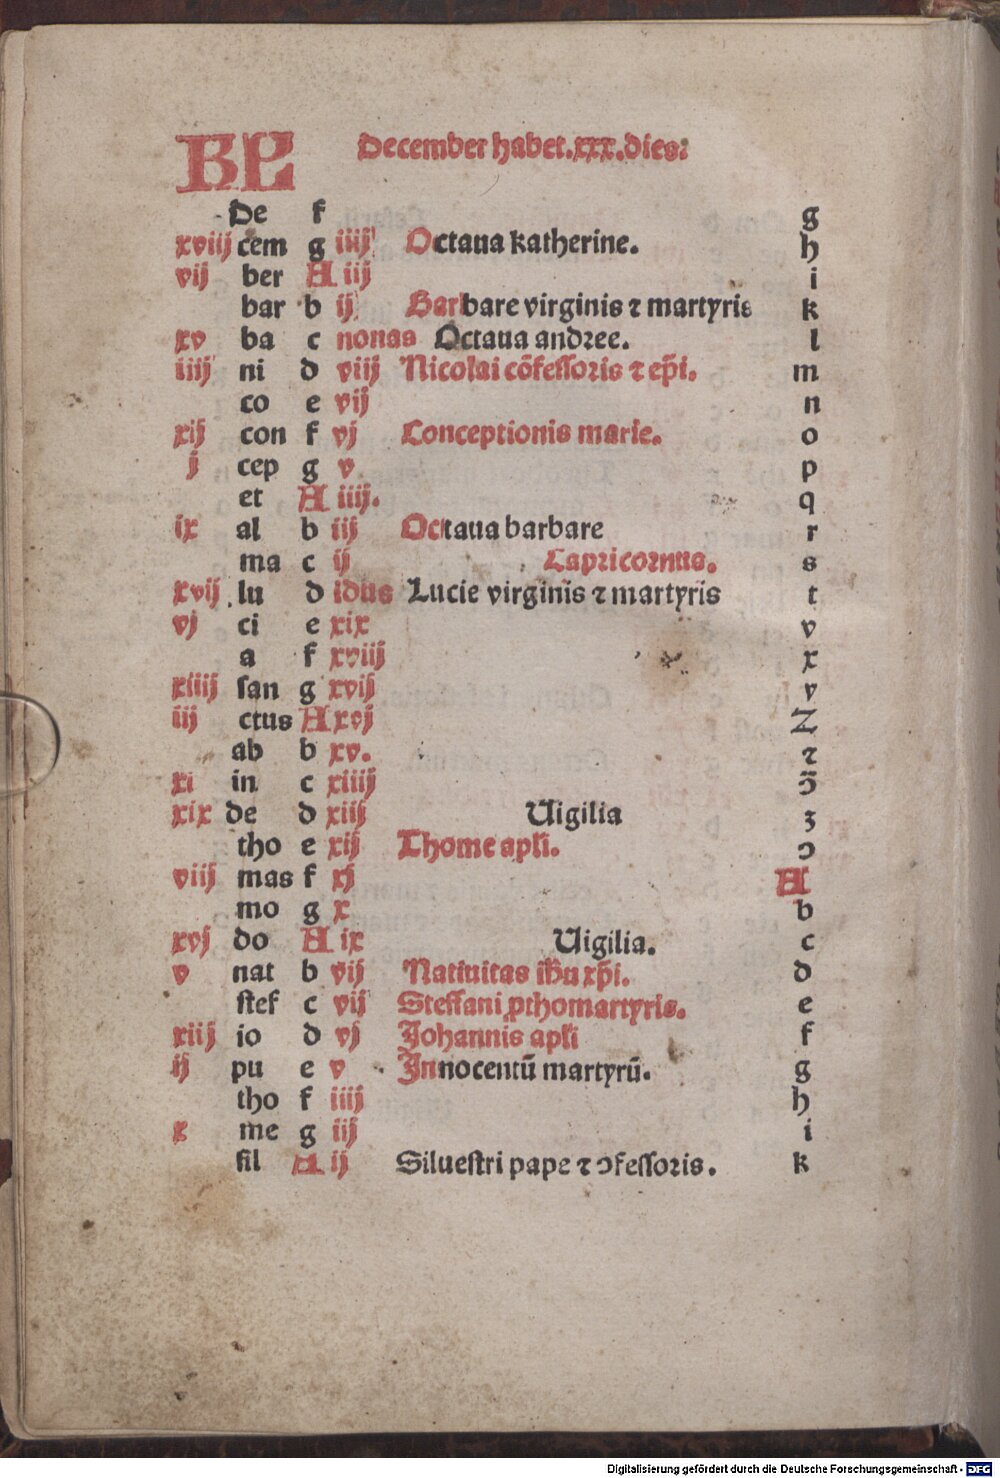 KL December habet.xxx.dies:
De f g
xviij cem g iiij Octaua katherine. h
vij ber A iij i
bar b ij Barbare virginis ⁊ martyris k
xv ba c nonas Octaua andree. l
iiij ni d viij Nicolai cōfessoris ⁊ ep̄i. m
co e vij n
xij con f vj Conceptionis marie. o
j cep g v p
et A iiij. q
ix al b iij Octaua barbare r
ma c ij Capricornus. s
xvij lu d idus Lucie virginis ⁊ martyris t
vj ci e xix v
a f xviij x
xiiij san g xvij y
iij ctus A xvj Z
ab b xv. ⁊
xi in c xiiij
xix de d xiij Uigilia ʒ
tho e xij Thome apl̄i. ɔ
viij mas f xj A
mo g x b
xvj do A ix Uigilia. c
v nat b viij Natiuitas ih̄u xp̄i. d
stef c vij Steffani ꝓthomartyris. e
xiij io d vj Johannis apl̄i f
ij pu e v Innocentū martyrū. g
tho f iiij h
x me g iij i
sil A ij Siluestri pape ⁊ ɔfessoris. k
Digitalisierung gefördert durch die Deutsche Forschungsgemeinschaft - DFG